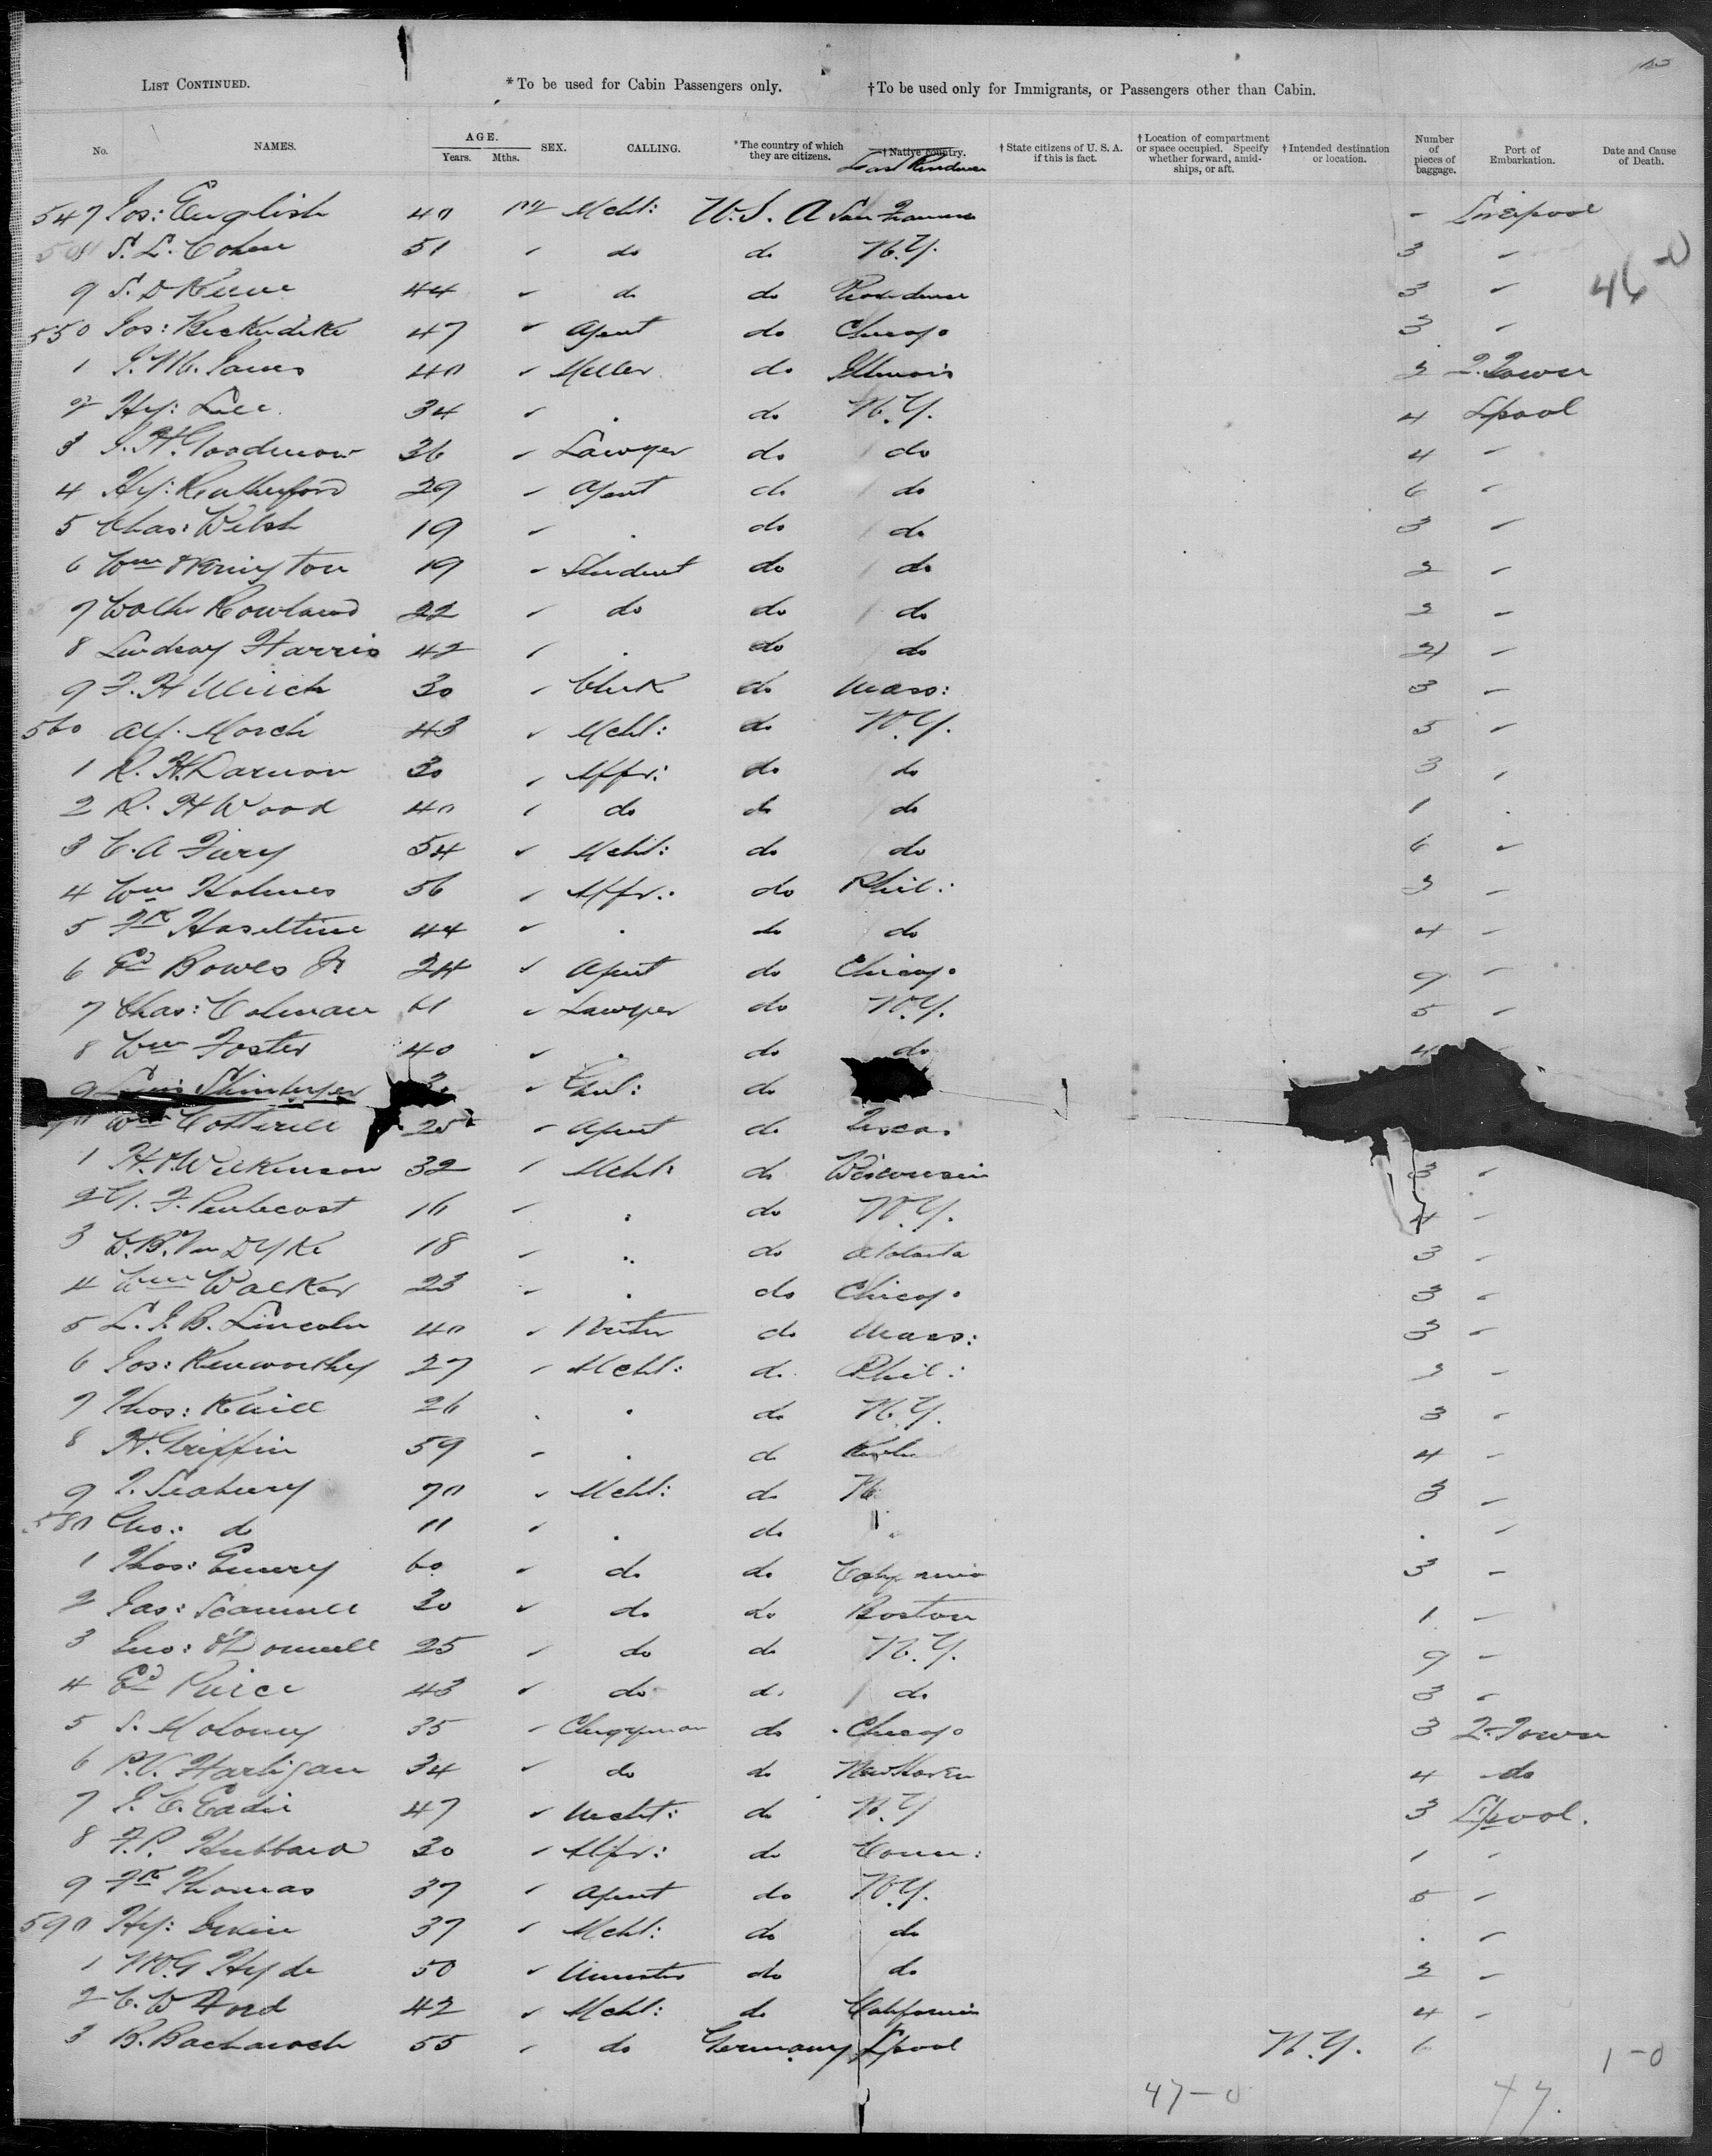 LIST CONTINUED. *To be used for Cabin Passengers only. †To be used only for Immigrants, or Passengers other than Cabin.
No. NAMES. AGE. Years. Mths. SEX. CALLING. *The country of which they are citizens. †Native country. †State citizens of U. S. A. if this is fact. †Location of compartment or space occupied. Specify whether forward, amidships, or aft. †Intended destination or location. Number of pieces of baggage. Port of Embarkation. Date and Cause of Death.
Last Residence
547 Jos: English 40 m Mcht: U.S.A San Francisco - Liverpool
548 S. L. Cohen 51 " do do N.Y. 3 "
46-0
9 S. D 44 " do do Providence 3 "
550 Jos: 47 " Agent do Chicago 3 "
1 J. M. James 40 " Miller do Illinois 2 Q.Town
2 Hy: Lee. 34 " . do N.Y. 4 Lpool
3 J. H. Goodenow 36 " Lawyer do do 4 "
4 Hy: Rutherford 29 " Agent do do 6 "
5 Chas: Welsh 19 " . do do 3 "
6 Wm 19 " Student do do 2 "
7 Walter Rowland 22 " do do do 2 "
8 Lindsay Harris 42 " . do do 21 "
9 F. H 30 " Clerk do Mass: 3 "
560 Alf. March 43 " Mcht: do N.Y. 5 "
1 R. H. Darnon 30 " Mffr: do do 3 "
2 R. H Wood 40 " do do do 1 .
3 C. A Fury 54 " Mcht: do do 6 "
4 Wm Holmes 56 " Mffr: do Phil: 2 "
5 Fk Haseltine 44 " . do do 4 "
6 Ed Bowes Jr 24 " Agent do Chicago 9 "
7 Chas: Colman 61 " Lawyer do N.Y. 5 "
8 Wm Foster 40 " . do do 4
9 " do
Wm Cotterill 25 " Agent do Texas
1 H. Wilkinson 32 " Mcht: do Wisconsin 3 "
2 G. F. Pentecost 16 " . do N.Y. 4 "
3 W. B. Van Dyke 18 " . do Atlanta 3 "
4 Wm Walker 23 " . do Chicago 3 "
5 L. J. B. Lincoln 40 " Writer do Mass: 3 "
6 Jos: Kenworthy 27 " Mcht: do Phil: 2 "
7 Thos: Knill 26 . . do N.Y. 3 "
8 H. Griffin 59 " . do 4 "
9 T. Seabury 70 " Mcht: do N 3 "
580 Geo: do 11 " . do . "
1 Thos: Emery 60 " do do California 3 "
2 Jas: Scammell 30 " do do Boston 1 "
3 Jno: O'Donnell 25 " do do N.Y. 9 "
4 Ed Price 43 " do do do 3 "
5 S. Moloney 35 " Clergyman do Chicago 3 Q.Town
6 P. V. Hartigan 34 " do do New Haven 4 do
7 J. C. Eadie 47 " Mcht: do N.Y 3 Lpool.
8 F. P. Hubbard 30 " Mfr: do Conn: 1 "
9 Fk Thomas 37 " Agent do N.Y. 5 "
590 Hy: Irwin 37 " Mcht: do do . "
1 W. G Hyde 50 " Minister do do 2 "
2 C. W Ford 42 " Mcht: do California 4 "
3 B. Bacharach 55 " do Germany Lpool N.Y. 6
1-0
47-0 47.